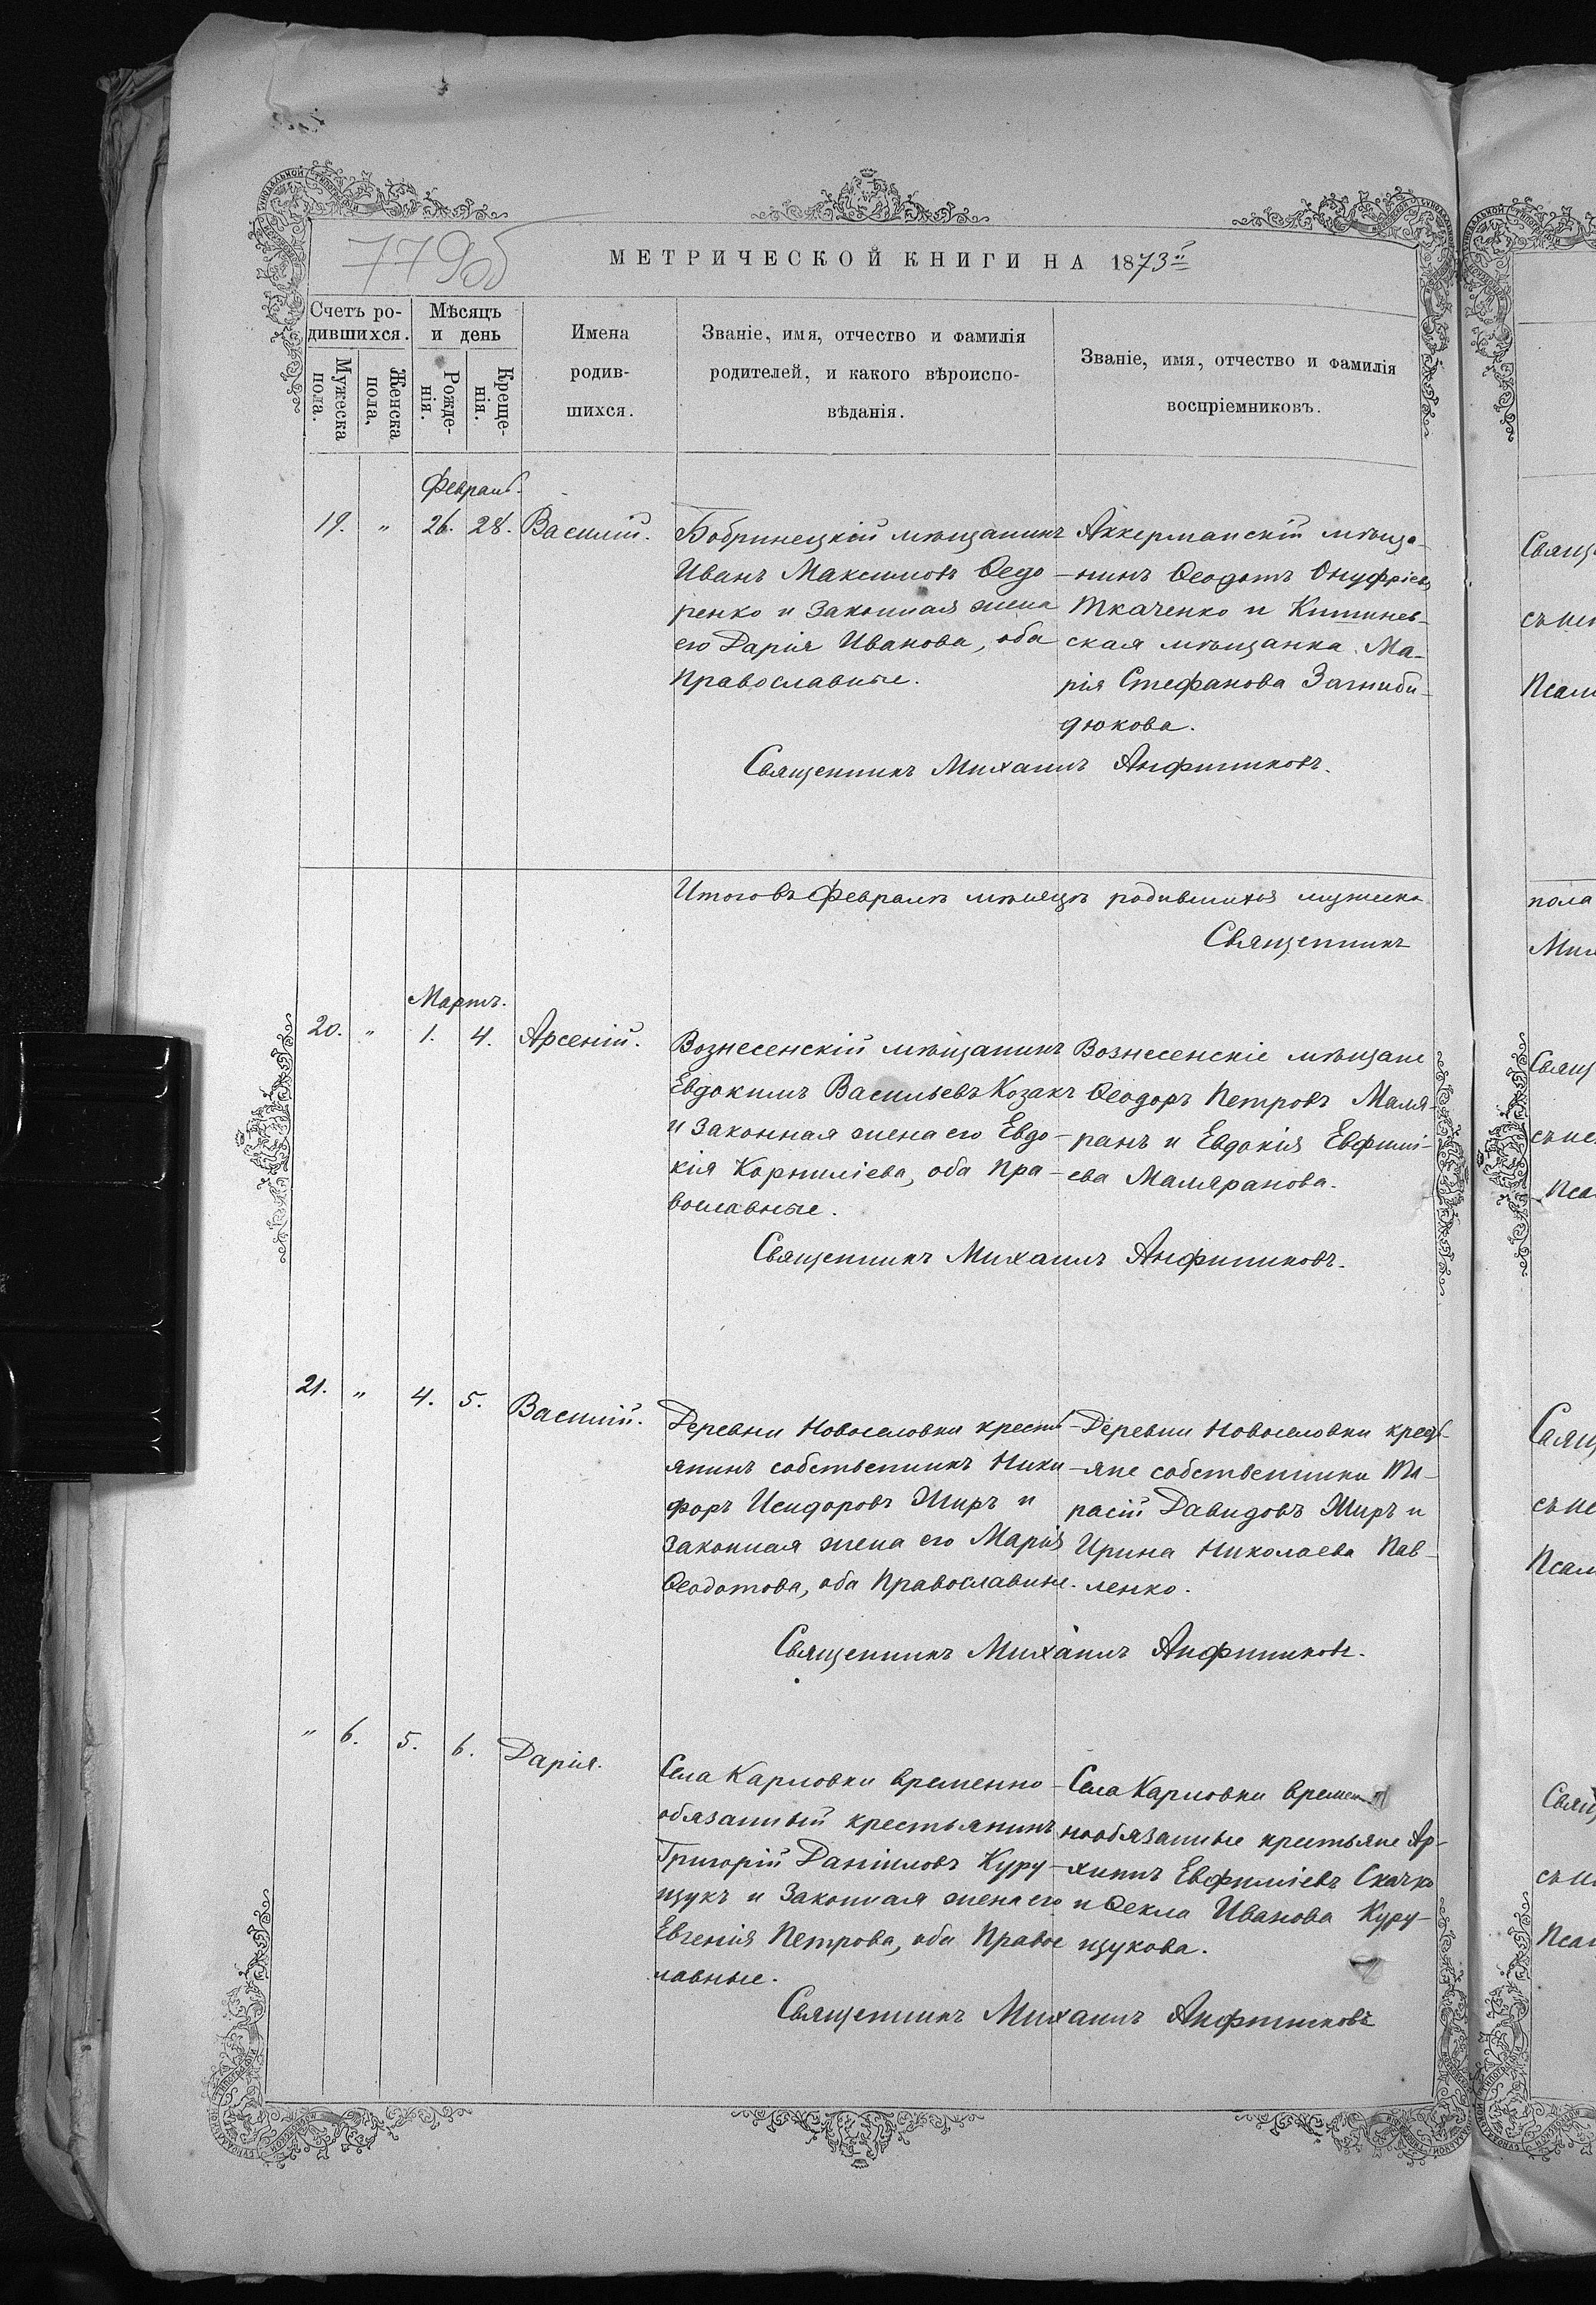 779об
МЕТРИЧЕСКОЙ КНИГИ НА 1873й
Счетъ ро-
дившихся.
Мужеска
пола.
Женска
пола,
Мѣсяцъ
и день
Рожде-
нія.
Креще-
нія.
Имена
родив-
шихся.
Званіе, имя, отчество и фамилія
родителей, и какого вѣроиспо-
вѣданія.
Званіе, имя, отчество и фамилія
воспріемниковъ.
Февраль.
19. " 26. 28. Василій.
Бобринецкій мѣщанинъ
Иванъ Максимовъ Ѳедо-
ренко и законная жена
его Дарія Иванова, оба
православные.
Аккерманскій мѣща-
нинъ Ѳеодотъ Онуфріевъ
Ткаченко и Кишинев-
ская мѣщанка Ма-
рія Стефанова Загниби-
дюкова.
Священникъ Михаилъ Анфиниковъ.
Итого въ Февралѣ мѣсяцѣ родившихся мужеска
Священникъ
Мартъ.
20. " 1. 4. Арсеній.
Вознесенскій мѣщанинъ
Евдокимъ Васильевъ Козакъ
и законная жена его Евдо-
кія Корниліева, оба пра-
вославные.
Вознесенскіе мѣщане
Ѳеодоръ Петровъ Маля-
ранъ и Евдокія Евфимі-
ева Маляранова.
Священникъ Михаилъ Анфиниковъ.
21. " 4. 5. Василій.
Деревни Новоселовки кресть-
янинъ собственникъ Ники-
форъ Исидоровъ Жиръ и
законная жена его Марія
Ѳеодотова, оба православные.
Деревни Новоселовки кресть-
яне собственники
расій Давидовъ Жиръ и
Ирина Николаева Пав-
ленко.
Священникъ Михаилъ Анфиниковъ.
" 6. 5. 6. Дарія.
Села Карловки временно-
обязанный крестьянинъ
Григорій Даніиловъ Куру-
щукъ и законная жена его
Евгенія Петрова, оба правос
лавные.
Села Карловки времен
нообязанные крестьяне Ар-
хипъ Евфиміевъ Скачко
и Ѳекла Иванова Куру-
щукова.
Священникъ Михаилъ Анфиниковъ
пола